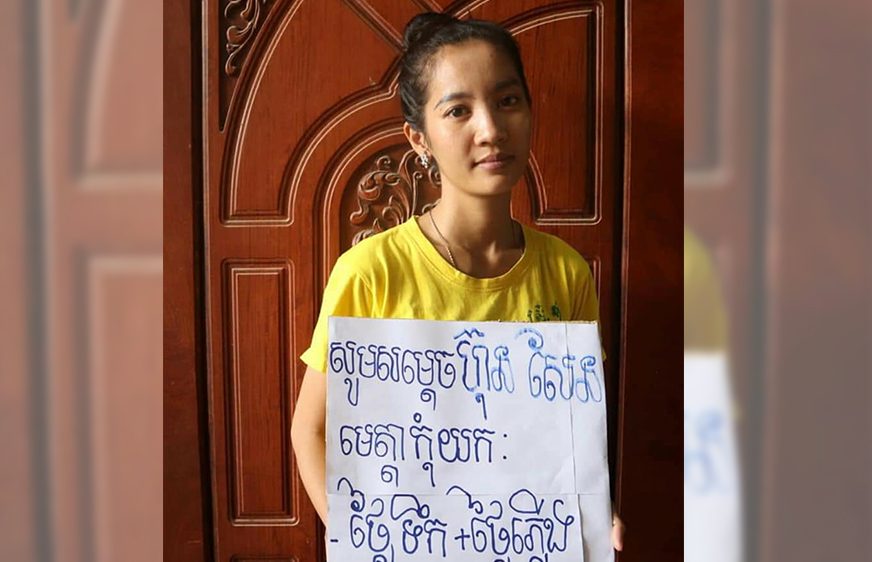 សូមសម្តេចហ៊ុន សែន
មេត្តាកុំយក:
- ថ្លៃទឹក+ថ្លៃភ្លើង